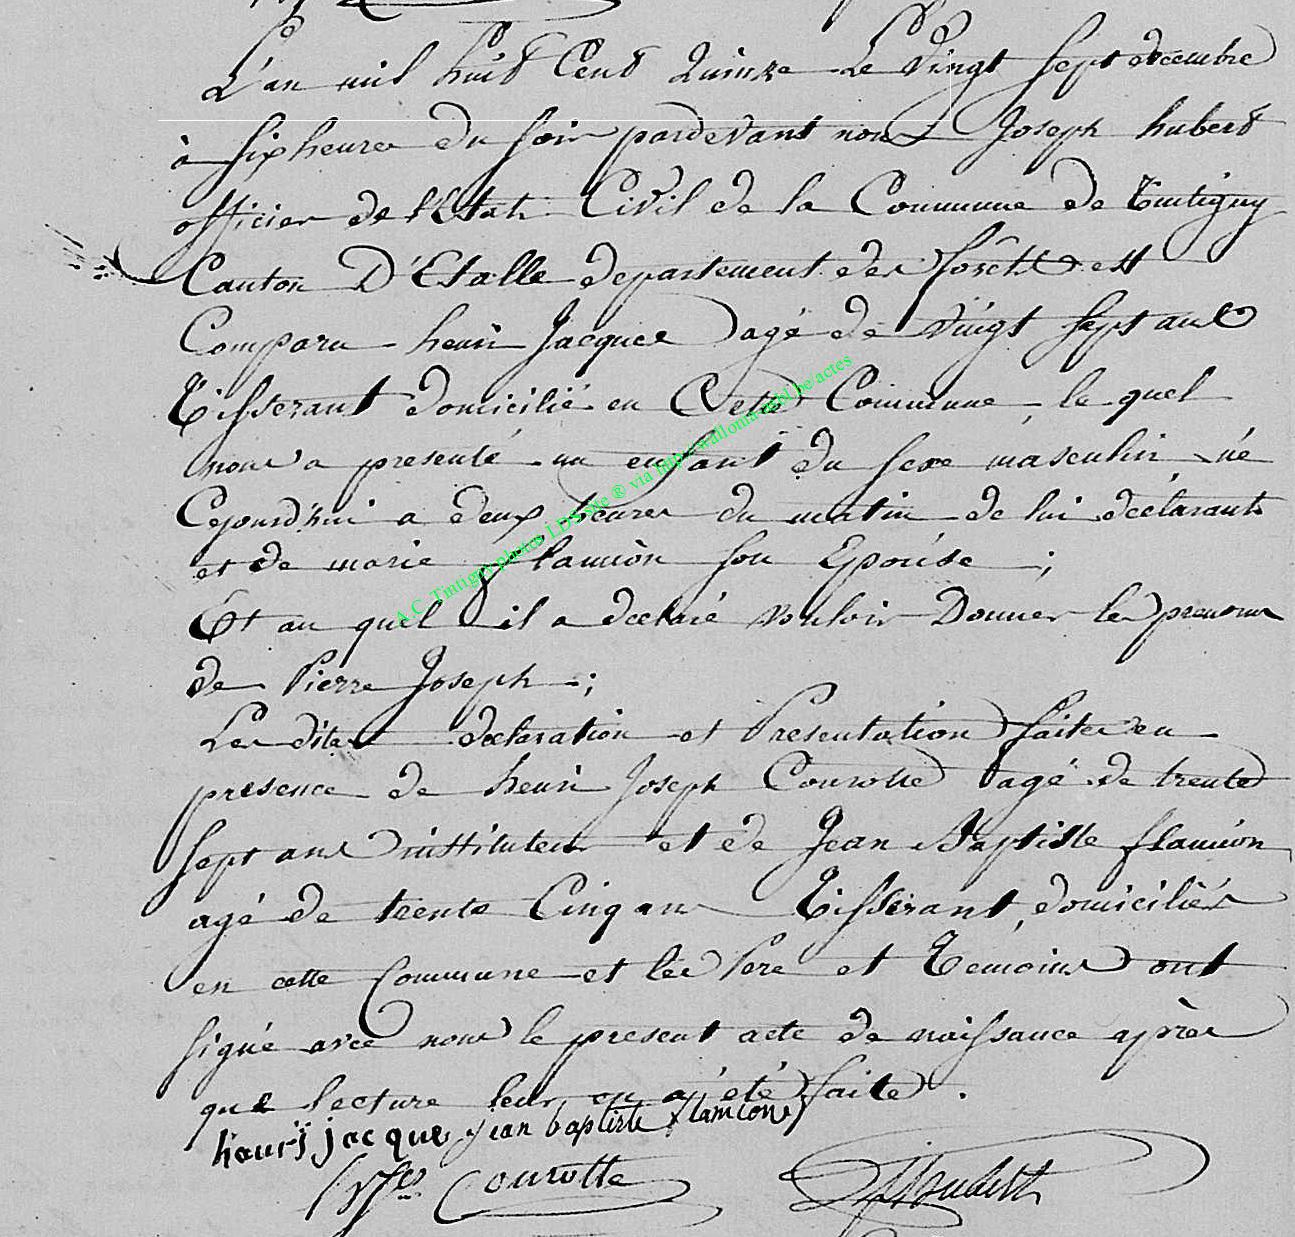 L'an mil huit Cent Quinze Le Vingt Sept decembre
à Six heures du Soir pardevant nous Joseph hubert
officier de l'Etat Civil de la Commune de Tintigny
Canton D'Etalle departement des forêts est
Comparu henri Jacques agé de Vingt Sept ans
Tisserant domicilié en Cette Commune le quel
nous a presenté un enfant du sexe masculin né
Cejourd'hui a deux heures du matin de lui déclarant
et de marie flamion son Epouse ;
Et au quel il a declaré vouloir Donner les prenoms
de Pierre Joseph ;
Les dites declaration et Presentation faites en
presence de henri Joseph Courotte agé de trente
Sept ans instituteur et de Jean Baptiste flamion
agé de trente Cinq ans Tisserant domiciliés
en cette Commune et les Pere et Temoins ont
Signé avec nous le present acte de naissance après
que lecture leur en a été faite .
jacque jean baptiste flamion
Courotte
A.C. Tintigny photos LDS site ® via http://wallonia.asbl.be/actes